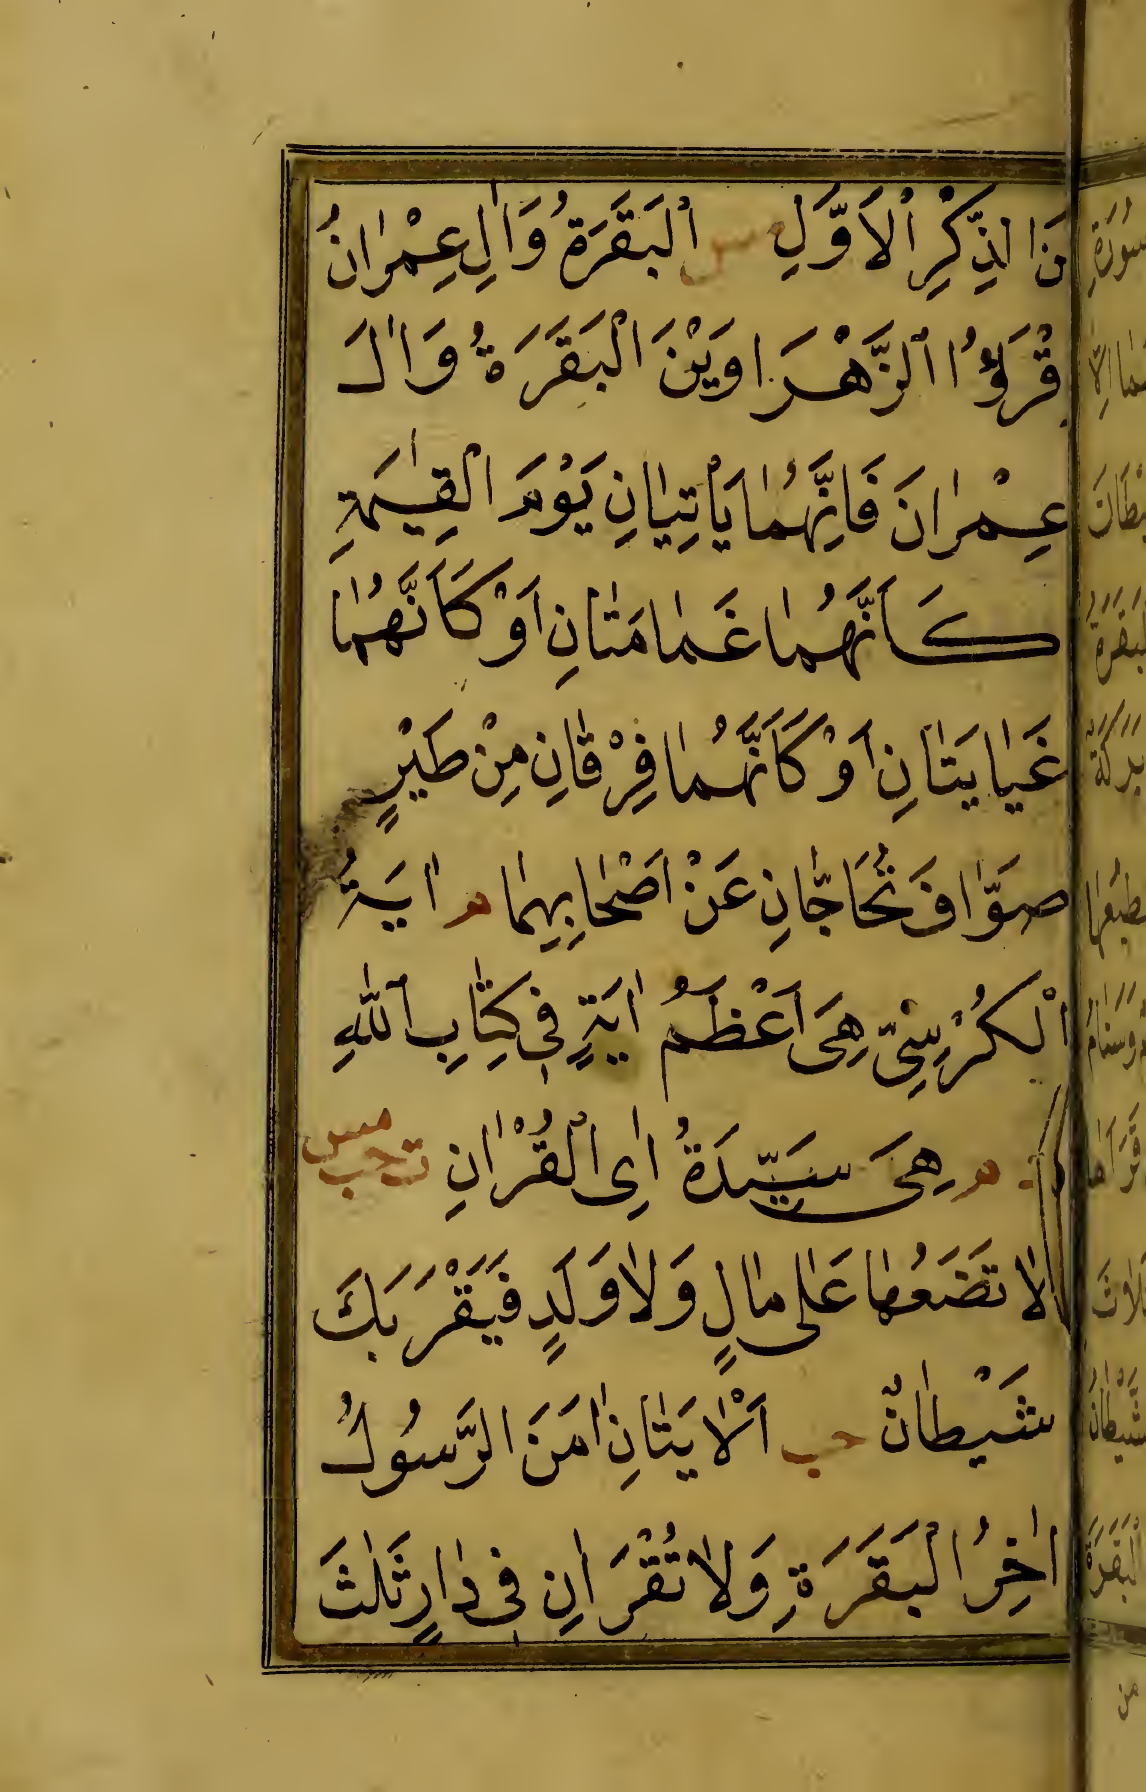 مِنَ الذِّكْرِ الْاَوَّلِ مس اَلْبَقَرَةُ وَاٰلِ عِمْرٰانُ
قْرَؤُا الزَّهْرَاوَيْنَ الْبَقَرَةُ وَاٰلَ
عِمْرٰانَ فَاِنَّهُمٰا يَاْتِيٰانِ يَوْمَ الْقِيٰمَةِ
كَاَنَّهُمٰا غَمٰامَتٰانِ اَوْ كَاَنَّهُمٰا
غَيٰايَتٰانِ اَوْ كَاَنَّهُمٰا فِرْقٰانِ مِنْ طَيْرٍ
صَوَّافَ تُحٰاجّٰانِ عَنْ اَصْحٰابِهِمٰا م اٰيَةُ
الْكُرْسِيِّ هِيَ اَعْظَمُ اٰيَةٍ فِي كِتٰابِ اللّٰهِ
م د هِيَ سَيِّدَةُ اٰيِ الْقُرْاٰنِ ت حب مس
لاٰ تَضَعُهٰا عَلٰى مٰالٍ وَلاٰ وَلَدٍ فَيَقْرَبَكَ
شَيْطٰانٌ حب اَلْاٰيَتٰانِ اٰمَنَ الرَّسُولُ
اٰخِرُ الْبَقَرَةِ وَلاٰ تُقْرَاٰنِ فِي دٰارٍ ثَلٰثَ